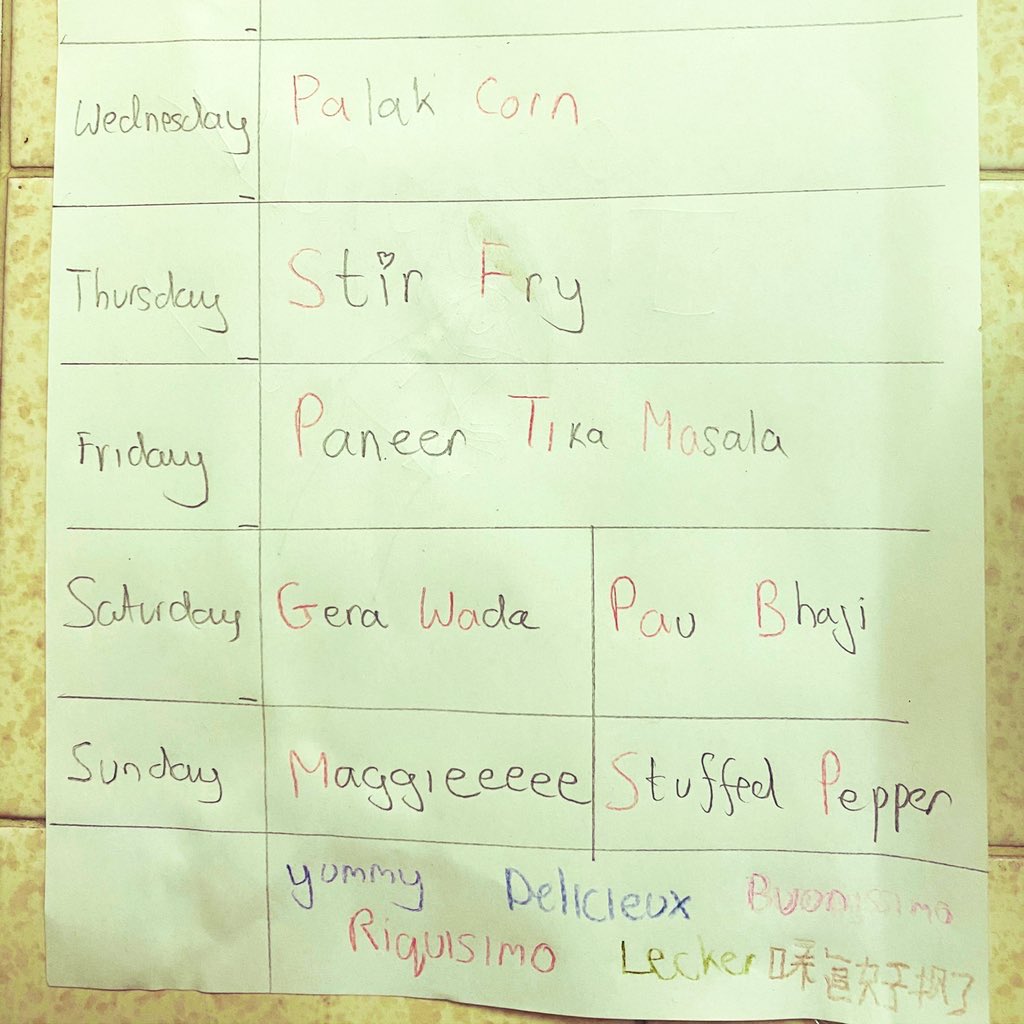 Wednesday Palak Corn
Thursday Stir Fry
Friday Paneer Tika Masala
Saturday Gera Wada Pav Bhaji
Sunday Maggieeeee Stuffed Pepper
yummy Delicieux Buonisimo
Riquisimo Lecker